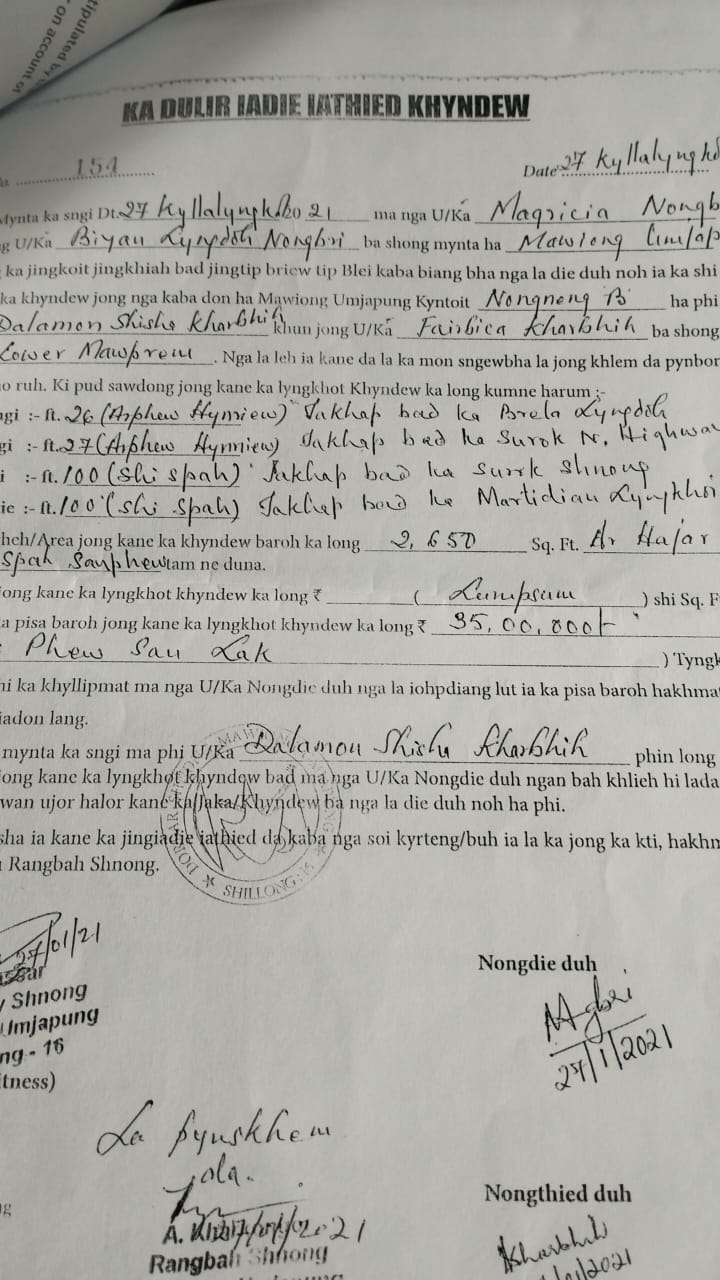 tipulated by
on account of
KA DULIR IADIE IATHIED KHYNDEW
154 Date 27 Kyllalyngko
Mynta ka sngi Dt. 27 Kyllalyngkot 2021 ma nga U/Ka Magricia Nongb
g U/Ka Biyan Lyngdoh Nongbri ba shong mynta ha Mawiong Umjap
ka jingkoit jingkhiah bad jingtip briew tip Blei kaba biang bha nga la die duh noh ia ka shi
ka khyndew jong nga kaba don ha Mawiong Umjapung Kyntoit Nongneng B ha phi
Dalamon Shisha Kharbhih khun jong U/Ka Fairbica Kharbhih ba shong
Lower Mawprem . Nga la leh ia kane da la ka mon sngewbha la jong khlem da pynbor
o ruh. Ki pud sawdong jong kane ka lyngkhot Khyndew ka long kumne harum :-
ngi :- ft. 26 (Arphew Hynriew) Jakhap bad ka Brela Lyngdoh
gi :- ft. 27 (Arphew Hynniew) Jakhap bad ka Surok N. Highway
i :- ft. 100 (shi spah) Jakhap bad ka Surok Shnong
ie :- ft. 100 (shi spah) Jakhap bad ka Martidian Lyngkhoi
heh/Area jong kane ka khyndew baroh ka long 2,650 Sq. Ft. Ar Hajar
Spah Sanphew tam ne duna.
jong kane ka lyngkhot khyndew ka long ₹ ( Lumpsum ) shi Sq. F
a pisa baroh jong kane ka lyngkhot khyndew ka long ₹ 35,00,000/-
Phew San Lak ) Tyngk
ni ka khyllipmat ma nga U/Ka Nongdie duh nga la iohpdiang lut ia ka pisa baroh hakhma
iadon lang.
mynta ka sngi ma phi U/Ka Dalamon Shisha Kharbhih phin long
jong kane ka lyngkhot khyndew bad ma nga U/Ka Nongdie duh ngan bah khlieh hi lada
wan ujor halor kane ka Jaka/Khyndew ba nga la die duh noh ha phi.
sha ia kane ka jingiadie iathied da kaba nga soi kyrteng/buh ia la ka jong ka kti, hakhm
Rangbah Shnong.
SHILLONG-16
27/01/21
Shnong
Umjapung
ng - 16
itness)
Nongdie duh
27/1/2021
La pynskhem
Nongthied duh
2021
Rangbah Shnong
Kharbhih
2021